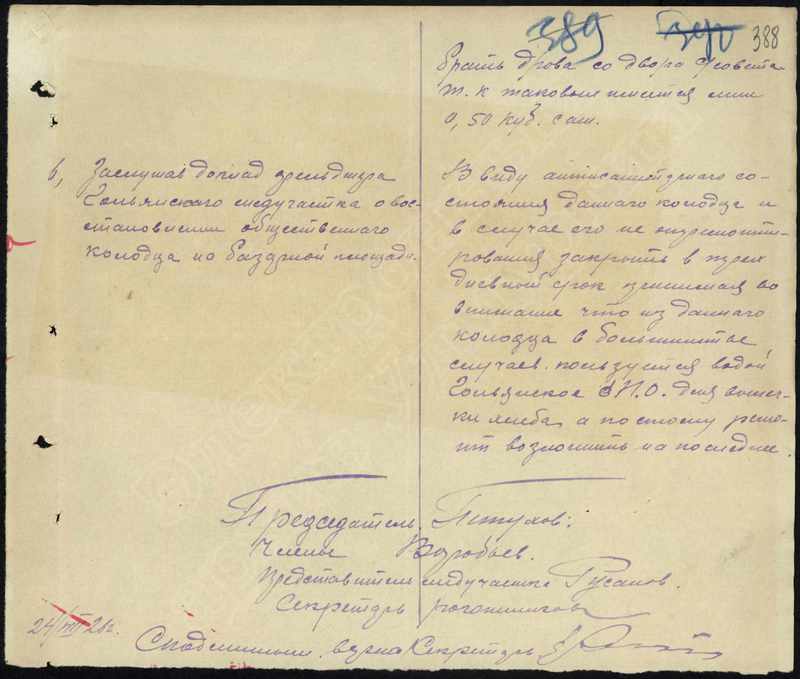 389 390 388
брать дрова со двора с/совета
т. к таковых имеется лиш
0,50 куб. саж.
6, Заслушав доклад фельдшера
Гольянскаго медучастка о вос-
становлении общественнаго
колодца на базарной площади.
В виду антисанитарнаго со-
стояния даннаго колодца и
в случае его не отремонти-
рования закрыть в трех
дневный срок принимая во
внимание что из даннаго
колодца в большинстве
случаев пользуется водой
Гольянское ЕПО. для выпеч-
ки хлеба, а потому ремо-
нт возложить на последнее.
Председатель Петухов:
Члены Воробьев.
Представитель медучастка Русанов.
Секретарь
24/VIII 26г.
С подлинным верно Секретарь